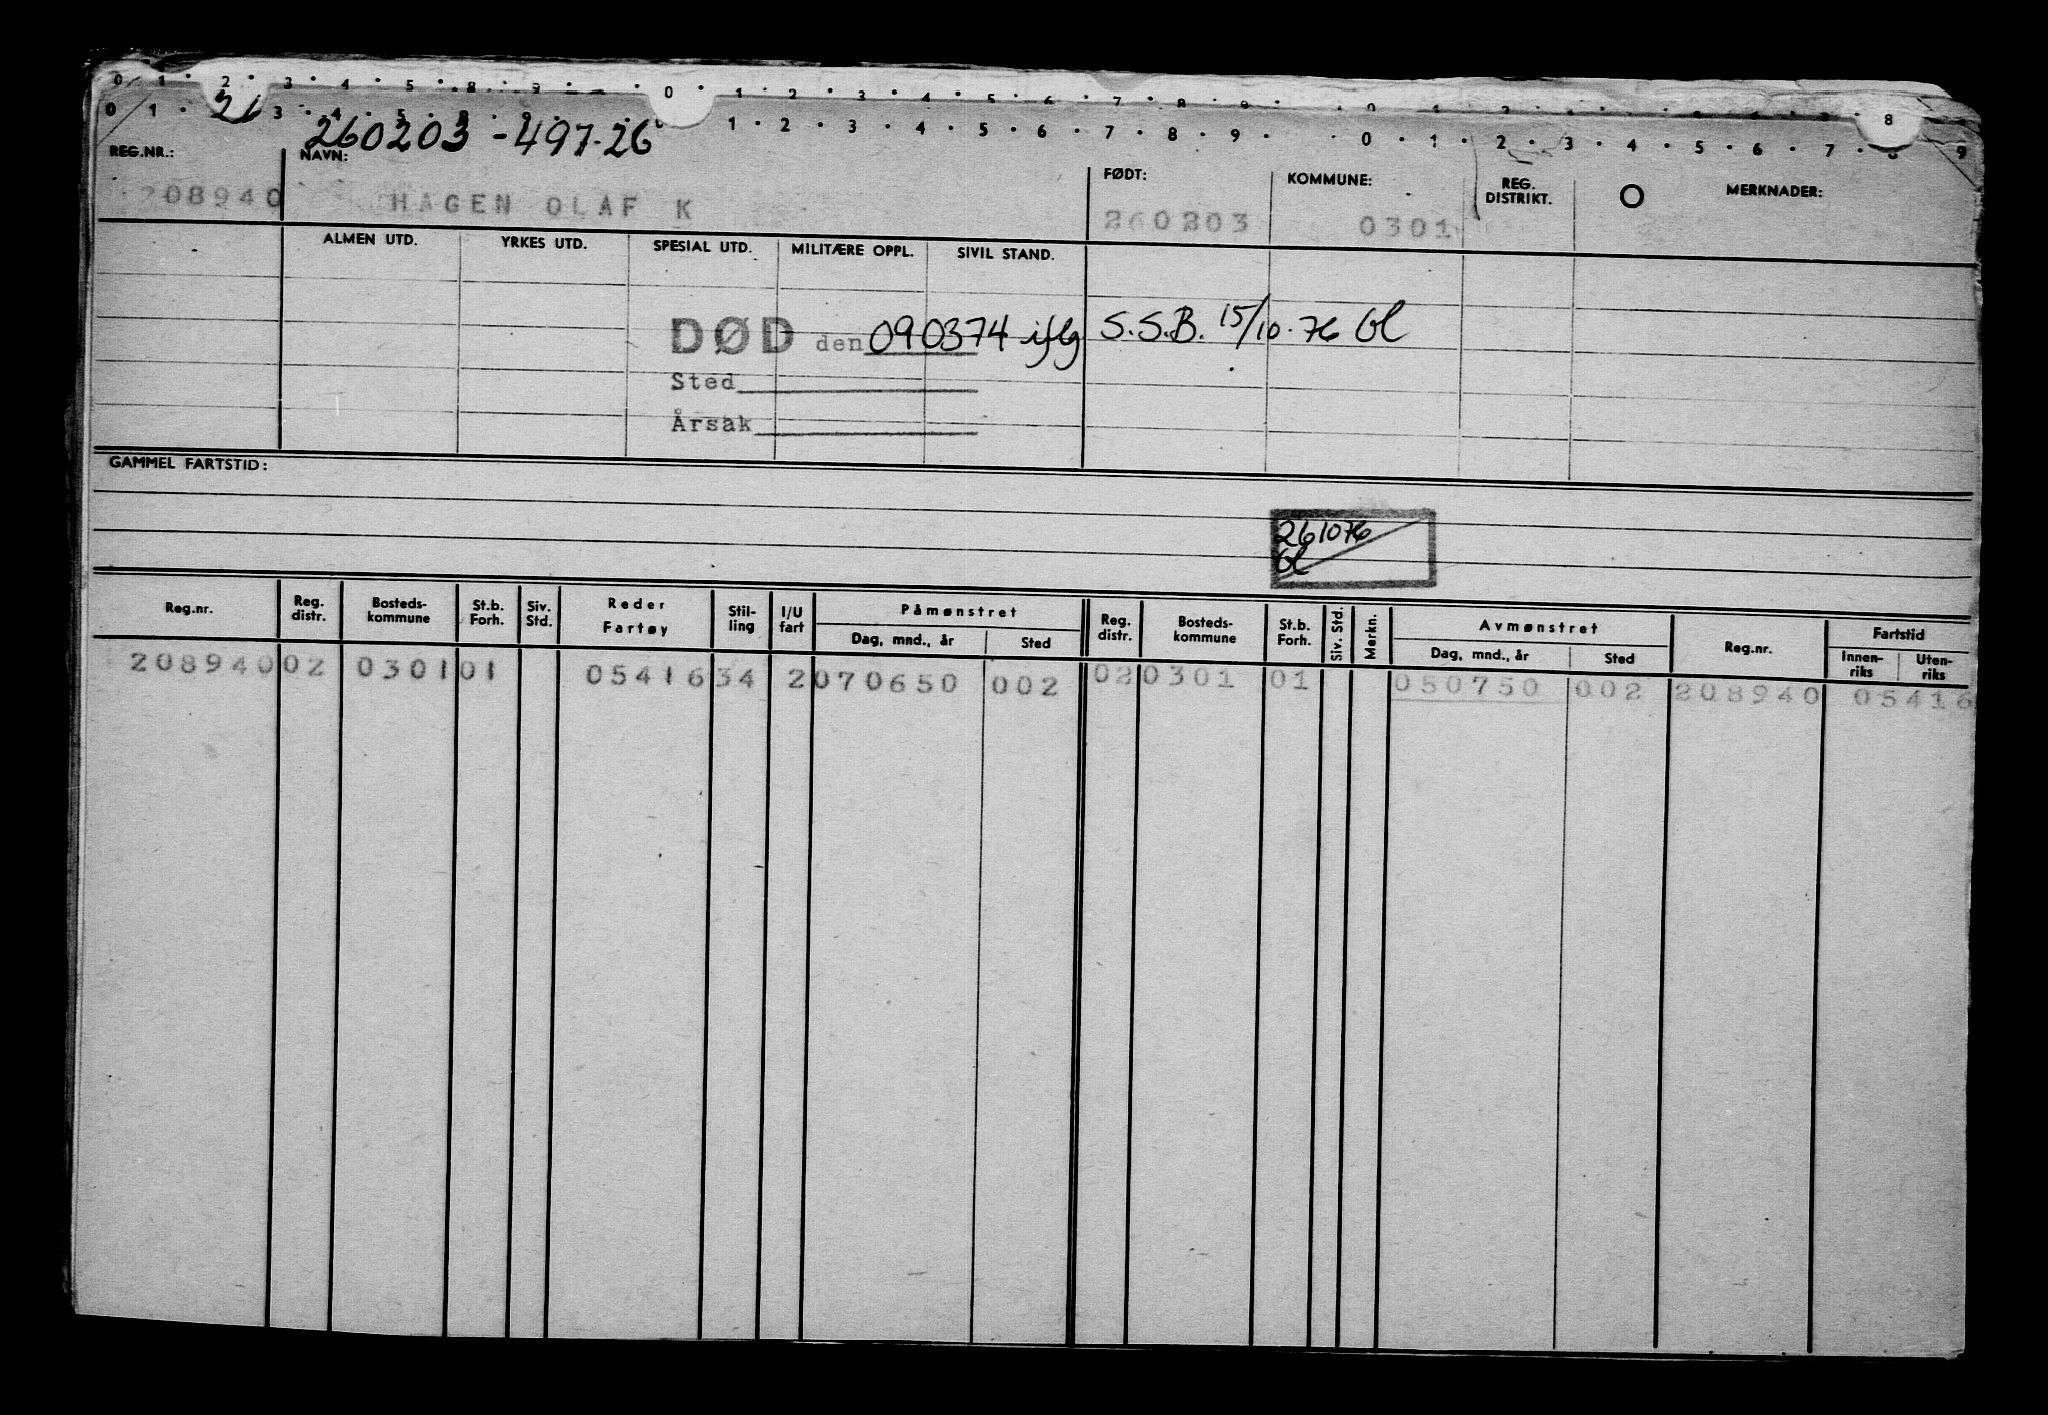 0 1 · 2 · 3 · 4 · 5 · 8 · 9 · 0 · 1 · 2 · 3 · 4 · 5 · 6 · 7 · 8 · 9 · 0 1 2 3 8
0 1 · 21 3 · 4 · 5 · 8 · 9 · 1 · 2 · 3 · 4 · 5 · 6 · 7 · 8 · 9 · · 0 · 1 · 2 · 3 · 4 · 5 · 6 · 7 · 8 · 9
260203-497.26
REG.NR.: NAVN: FØDT: KOMMUNE: REG. DISTRIKT. O MERKNADER:
208940 HAGEN OLAF K 260203 0301
ALMEN UTD. YRKES UTD. SPESIAL UTD. MILITÆRE OPPL. SIVIL STAND.
DØD den 090374 iflg S.S.B. 15/10.76 Gl
Sted
Årsak
GAMMEL FARTSTID:
261076
Gl
Reg.nr. Reg. distr. Bosteds-kommune St.b. Forh. Siv. Std. Reder Fartøy Stil-ling I/U fart Påmønstret Reg. distr. Bosteds-kommune St.b. Forh. Siv. Std. Merkn. Avmønstret Reg.nr. Fartstid
Dag, mnd., år Sted Dag, mnd., år Sted Innen-riks Uten-riks
208940 02 0301 01 05416 34 2 070650 002 02 0301 01 050750 002 208940 05416